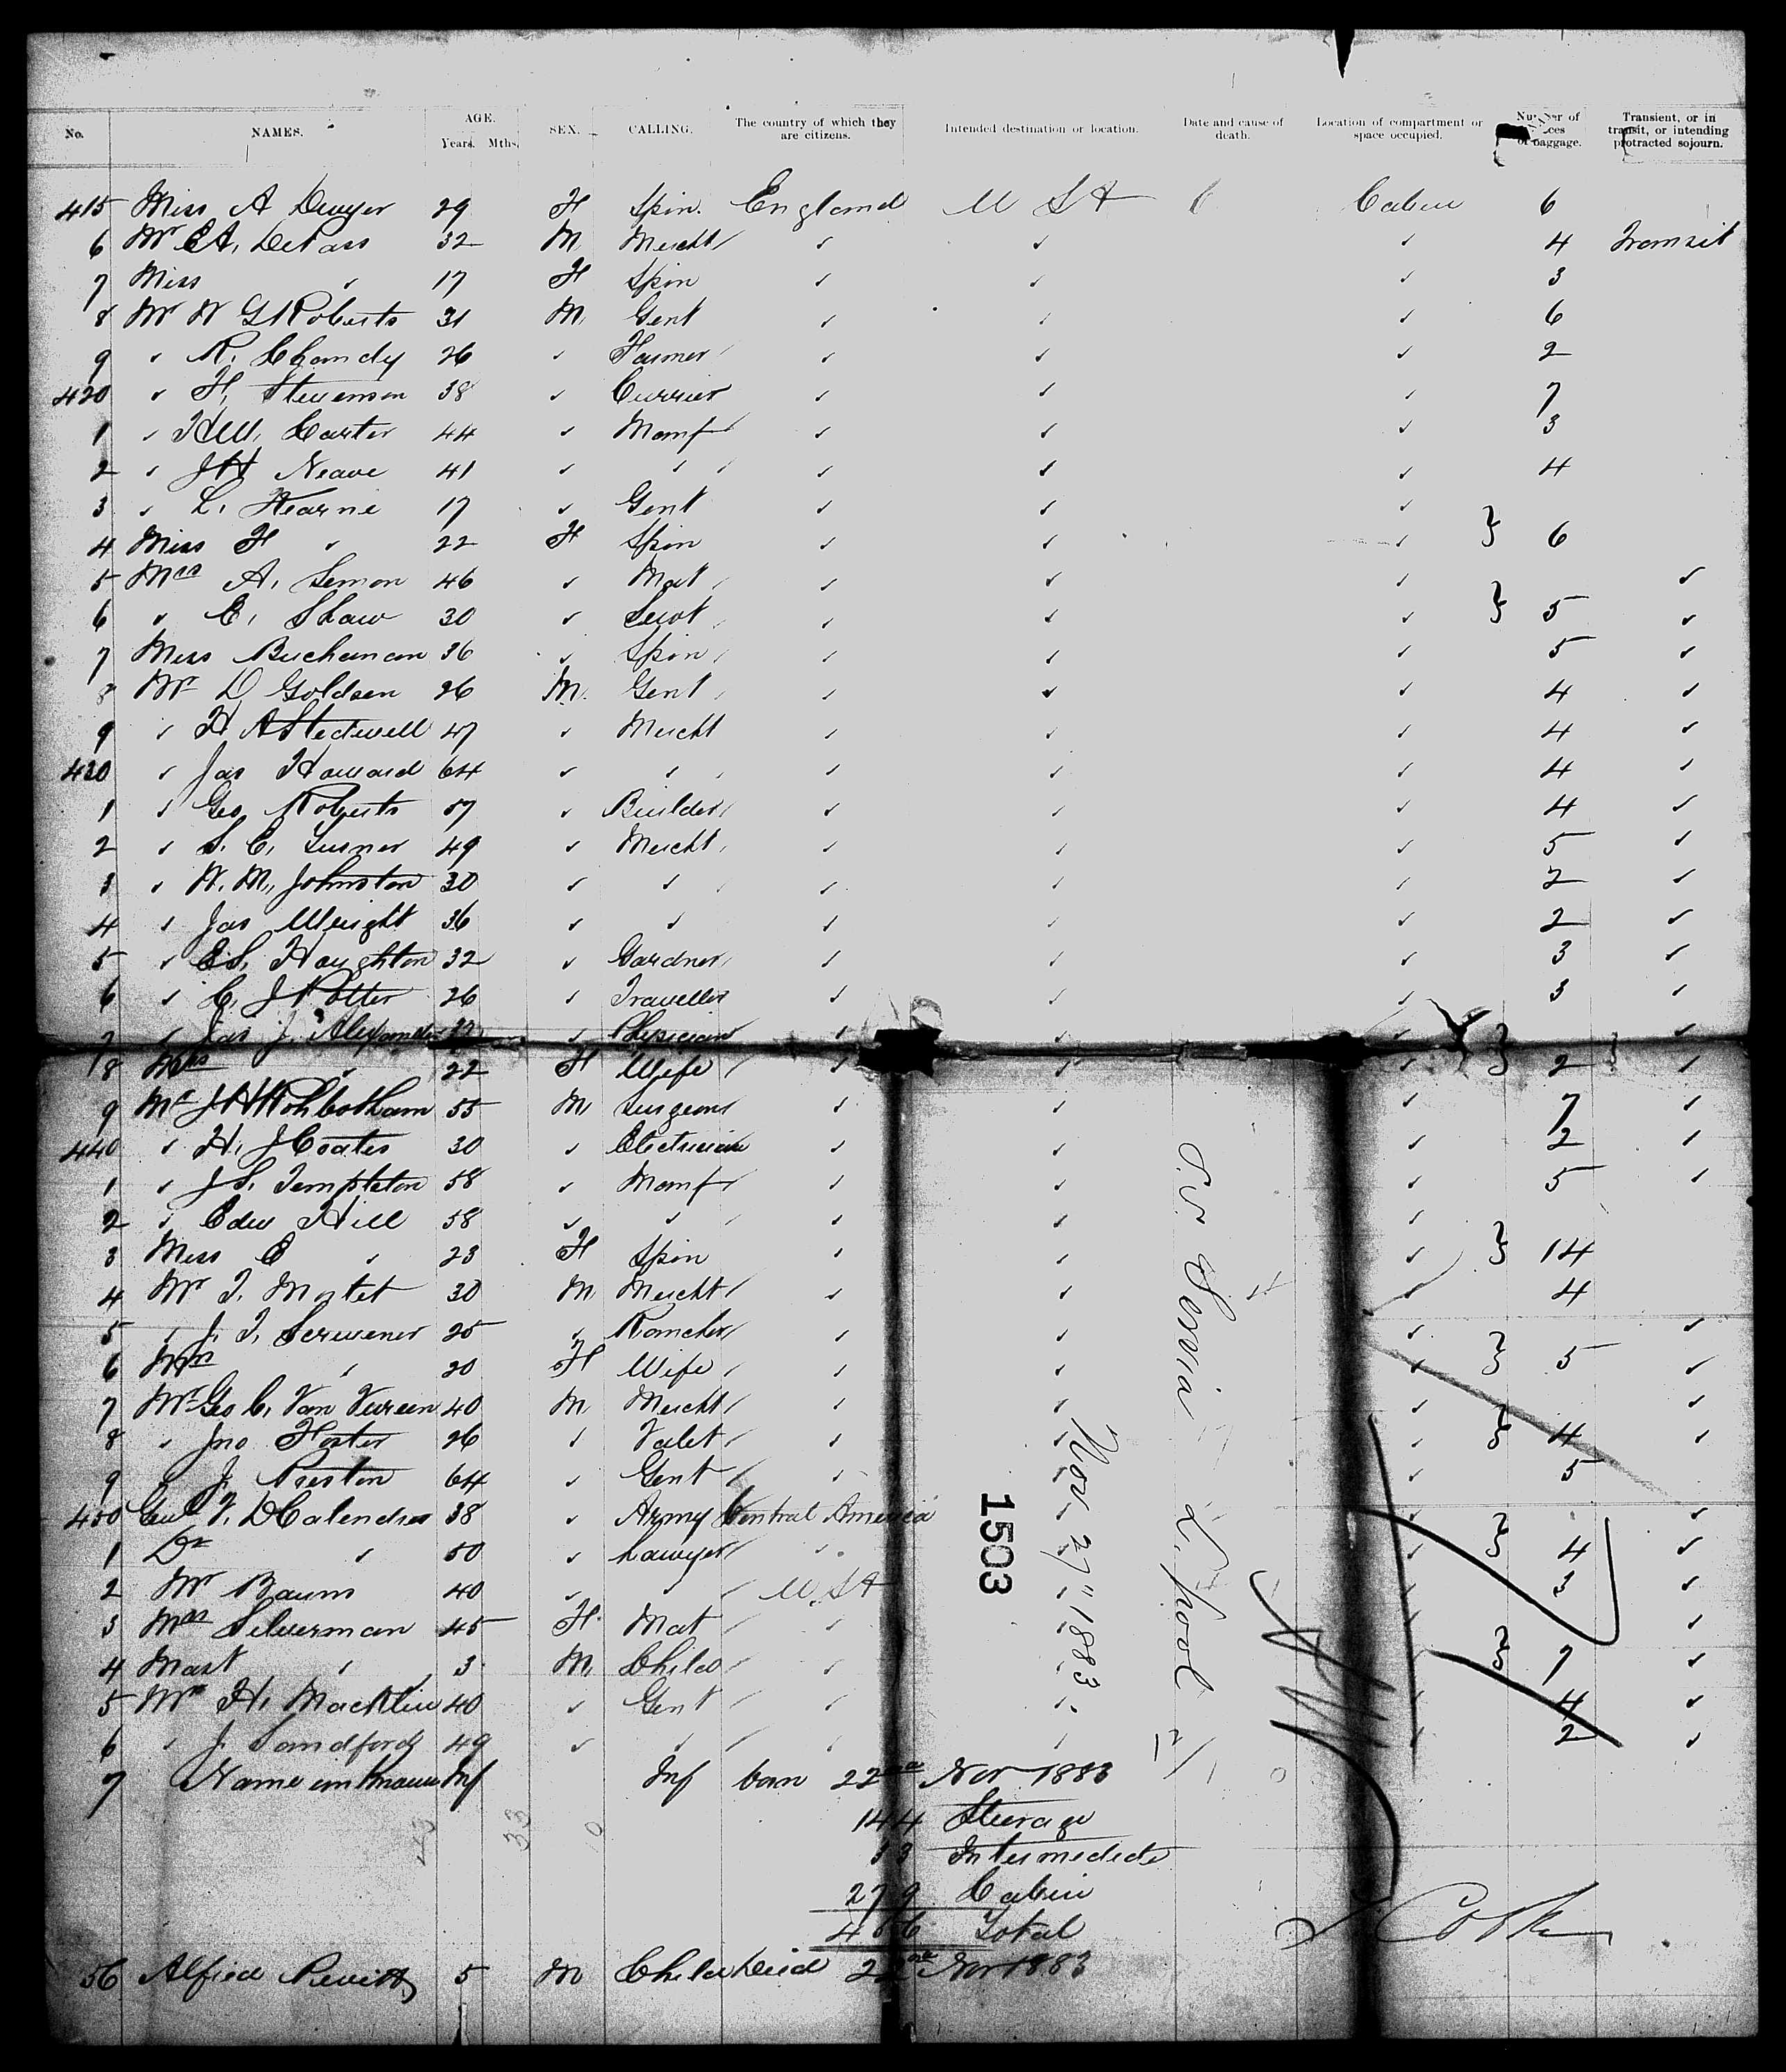 No. NAMES. AGE. Years. Mths. SEX. CALLING. The country of which they are citizens. Intended destination or location. Date and cause of death. Location of compartment or space occupied. Number of pieces of baggage. Transient, or in transit, or intending protracted sojourn.
415 Miss A Dwyer 29 F Spin. England U S A Cabin 6
6 Mr EA, DePass 32 M Mercht ✓ ✓ ✓ 4 Transit
7 Miss ✓ 17 F Spin ✓ ✓ ✓ 3
8 Mr W G Roberts 31 M Gent ✓ ✓ ✓ 6
9 ✓ R. Chandy 26 ✓ Farmer ✓ ✓ ✓ 2
420 ✓ H, Stevenson 38 ✓ Currier ✓ ✓ ✓ 7
1 ✓ HW, Carter 44 ✓ Manf ✓ ✓ ✓ 3
2 ✓ JH Neave 41 ✓ ✓ ✓ ✓ ✓ 4
3 ✓ L. Hearne 17 ✓ Gent ✓ ✓ ✓
4 Miss F ✓ 22 F Spin ✓ ✓ ✓ } 6
5 Mrs A, Lemon 46 ✓ Mat ✓ ✓ ✓ ✓
6 ✓ E, Shaw 30 ✓ Servt ✓ ✓ ✓ } 5 ✓
7 Miss Buchanan 36 ✓ Spin ✓ ✓ ✓ 5 ✓
8 Mr D Goldsen 26 M. Gent ✓ ✓ ✓ 4 ✓
9 ✓ H A Stedwell 47 ✓ Mercht ✓ ✓ ✓ 4 ✓
430 ✓ Jas Howard 64 ✓ ✓ ✓ ✓ ✓ 4 ✓
1 ✓ Geo Roberts 57 ✓ Builder ✓ ✓ ✓ 4 ✓
2 ✓ S. C, Turner 49 ✓ Mercht ✓ ✓ ✓ 5 ✓
3 ✓ W. M, Johnston 30 ✓ ✓ ✓ ✓ ✓ 2 ✓
4 ✓ Jas Wright 36 ✓ ✓ ✓ ✓ ✓ 2 ✓
5 ✓ ES, Haughton 32 ✓ Gardner ✓ ✓ ✓ 3 ✓
6 ✓ C, J Potter 26 ✓ Traveller ✓ ✓ ✓ 3 ✓
7 ✓ Jas J. Alexander ✓ Physician ✓ ✓ ✓ ✓
8 Mrs ✓ 22 F Wife ✓ ✓ ✓ } 2 ✓
9 Mr JH Rohbotham 55 M Surgeon ✓ ✓ ✓ 7 ✓
440 ✓ H, J Coates 30 ✓ Electrician ✓ ✓ ✓ 2 ✓
1 ✓ J S, Templeton 58 ✓ Manf ✓ ✓ ✓ 5 ✓
2 ✓ Edw Hill 58 ✓ ✓ ✓ ✓ ✓
3 Miss E ✓ 23 F Spin ✓ ✓ ✓ } 14
4 Mr T. Mortet 30 M Mercht ✓ ✓ ✓ 4
5 ✓ J. T, Scrivener 25 ✓ Rancher ✓ ✓ ✓ ✓
6 Mrs ✓ 20 F Wife ✓ ✓ ✓ } 5 ✓
7 Mr Geo C, Van Vureen 40 M Mercht ✓ ✓ ✓ ✓
8 ✓ Jno Foster 26 ✓ Valet ✓ ✓ ✓ } 4 ✓
9 ✓ J. Preston 64 ✓ Gent ✓ ✓ ✓ 5
450 Genl F. DCalendras 38 ✓ Army Central America ✓ ✓ ✓
1 Dr ✓ 50 ✓ Lawyer ✓ ✓ ✓ } 4 ✓
2 Mr Baum 40 ✓ ✓ U.SA ✓ ✓ 3 ✓
3 Mrs Silverman 45 F. Mat ✓ ✓ ✓ ✓
4 Mast ✓ 3 M Child ✓ ✓ ✓ } 7 ✓
5 Mr H, Macklin 40 ✓ Gent ✓ ✓ ✓ 4 ✓
6 ✓ J. Sandford 49 ✓ ✓ ✓ ✓ ✓ 2 ✓
7 Name unknown Inf Inf born 22nd Nov 1883
144 Steerage
33 Intermediate
279 Cabin
456 Total
56 Alfred Revitt 5 M Child Died 22nd Nov 1883
S.S Servia L.pool
Nov 27" 1883.
1503
43 33 10
Cook